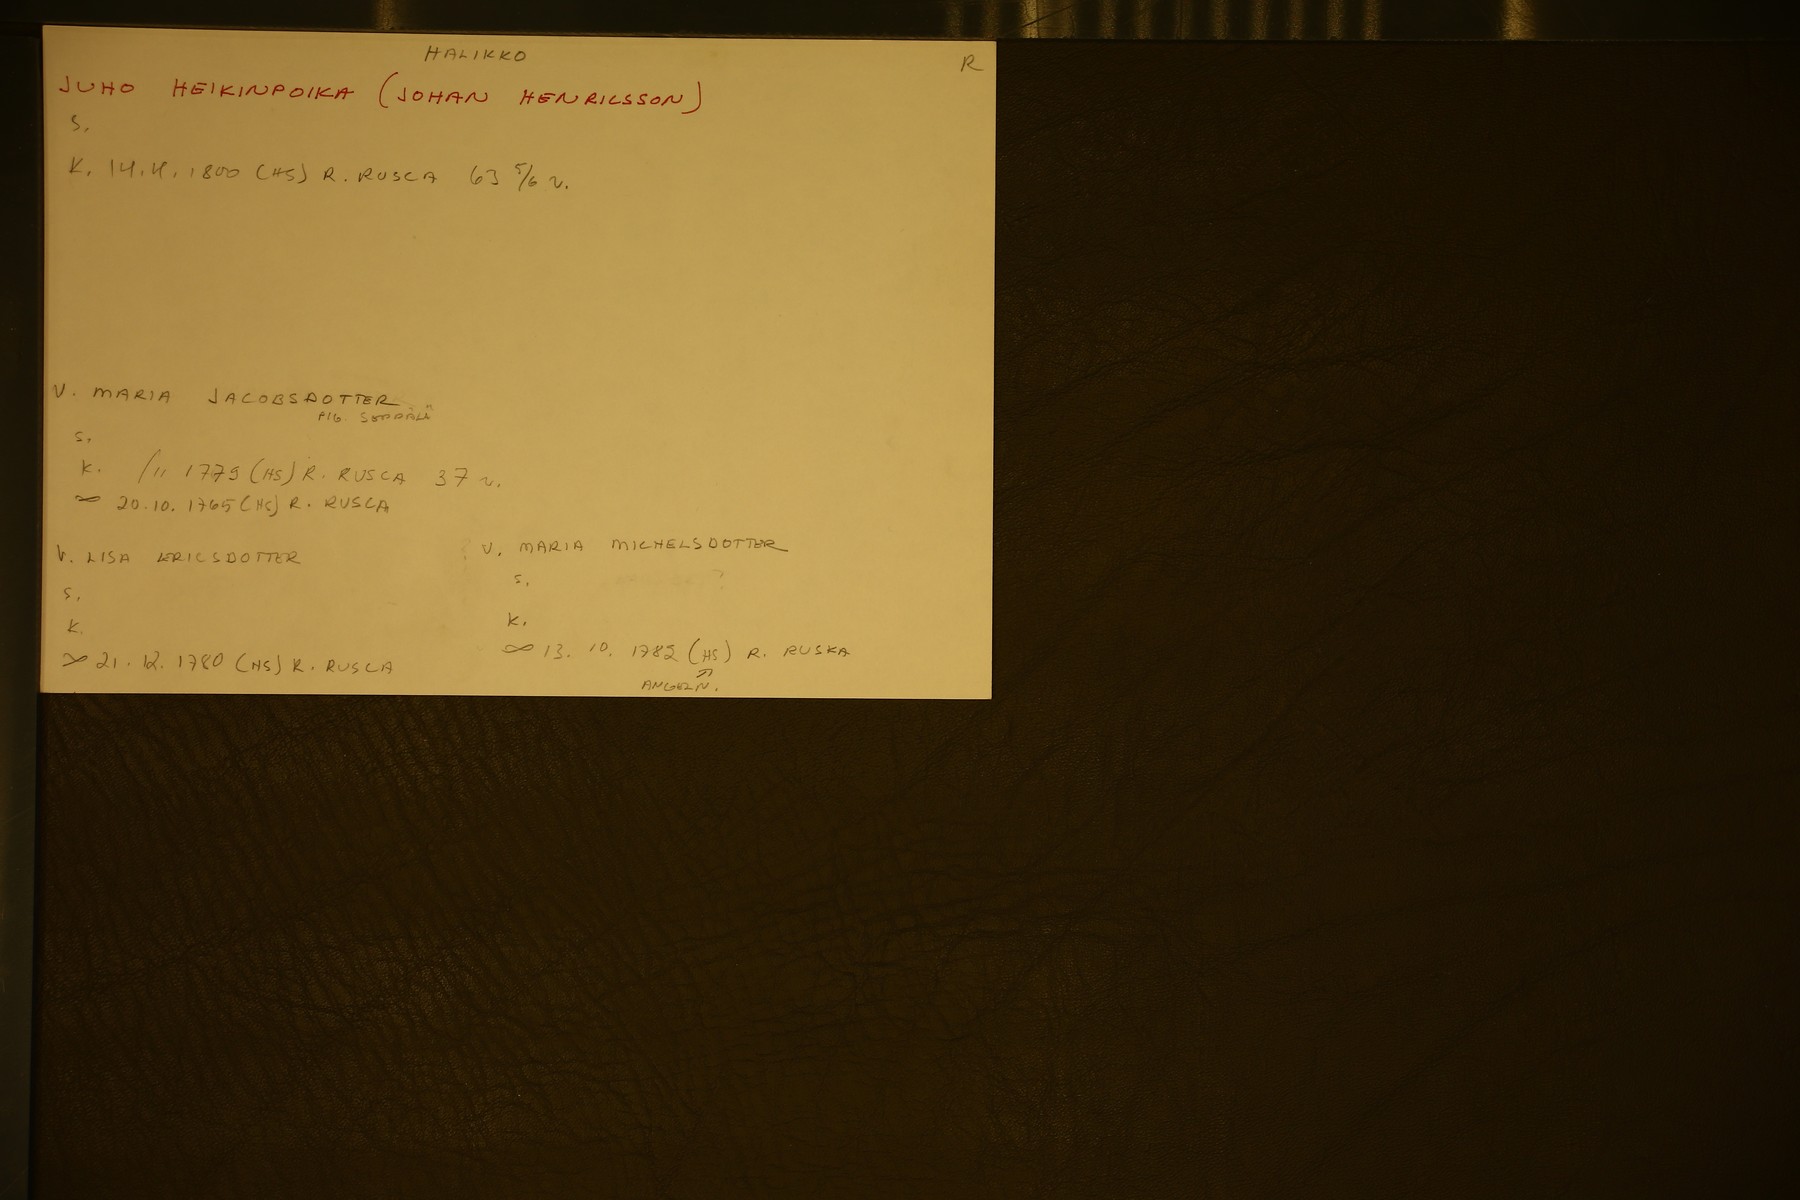 HALIKKO
R
JUHO HEIKINPOIKA (JOHAN HENRICSSON)
S.
K. 14.4.1800 (HS) R. RUSCA 63 5/6 v.
V. MARIA JACOBSDOTTER
PIG. SEPPÄLÄ
S.
K. /11 1779 (HS) R. RUSCA 37 v.
∞ 20.10.1765 (HS) R. RUSCA
V. LISA ERICSDOTTER
S.
K.
∞ 21.12.1780 (HS) R. RUSCA
V. MARIA MICHELSDOTTER
S.
K.
∞ 13.10. (HS) R. RUSKA